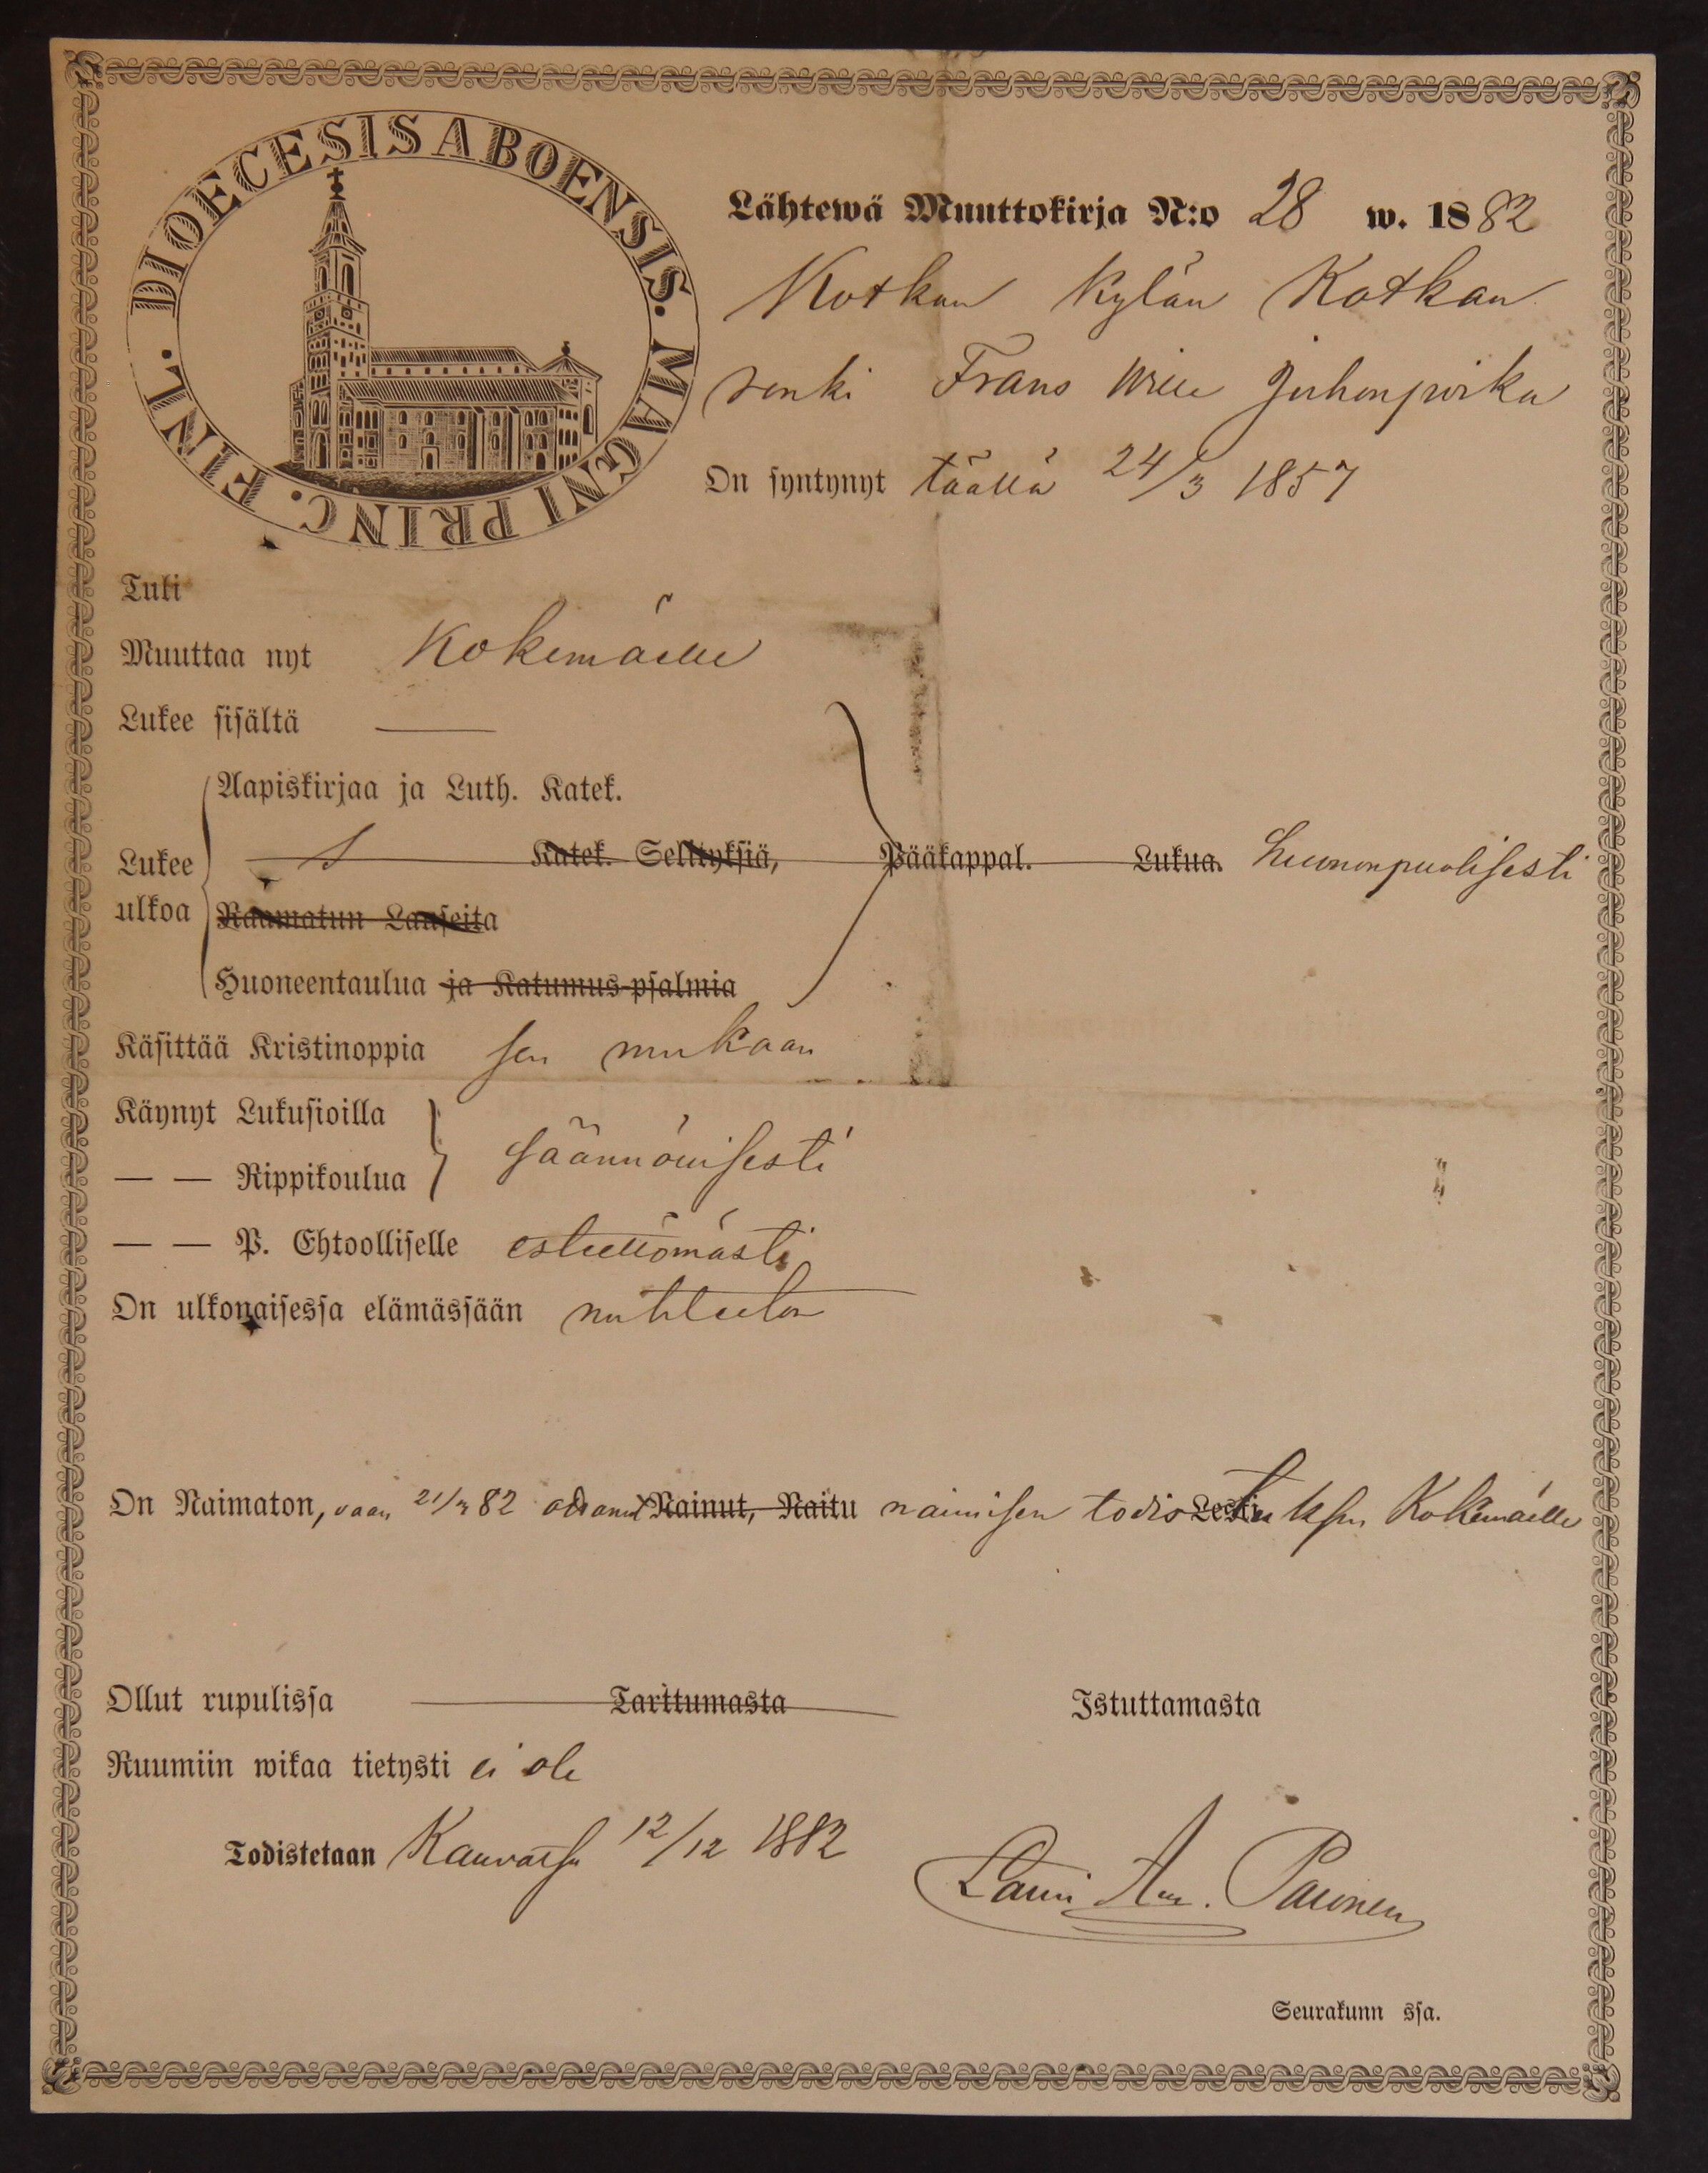 DIOECESIS ABOENSIS. MAGNI PRINC. FINL.
Lähtewä Muuttokirja N:o 28 w. 1882
Kotkan kylän Kotkan
renki Frans Wille Juhonpoika
On syntynyt täällä 24/3 1857
Tuli
Muuttaa nyt Kokemäelle
Lukee sisältä —
Aapiskirjaa ja Luth. Katek.
Lukee ulkoa
Katek. Selityksiä, Pääkappal. Lukua. Huononpuolisesti
Raamatun Lauseita
Huoneentaulua ja Katumus-psalmia
Käsittää Kristinoppia sen mukaan
Käynyt Lukusioilla
— — Rippikoulua säännöllisesti
— — P. Ehtoolliselle esteettömästi
On ulkonaisessa elämässään nuhteeton
On Naimaton, vaan 21/3 82 ottanut Nainut, Naitu naimisen todis Leski tuksen Kokemäelle
Ollut rupulissa Tarttumasta Istuttamasta
Ruumiin wikaa tietysti ei ole
Todistetaan Kauvatsa 12/12 1882
Lauri Aug. Paronen
Seurakunn ssa.